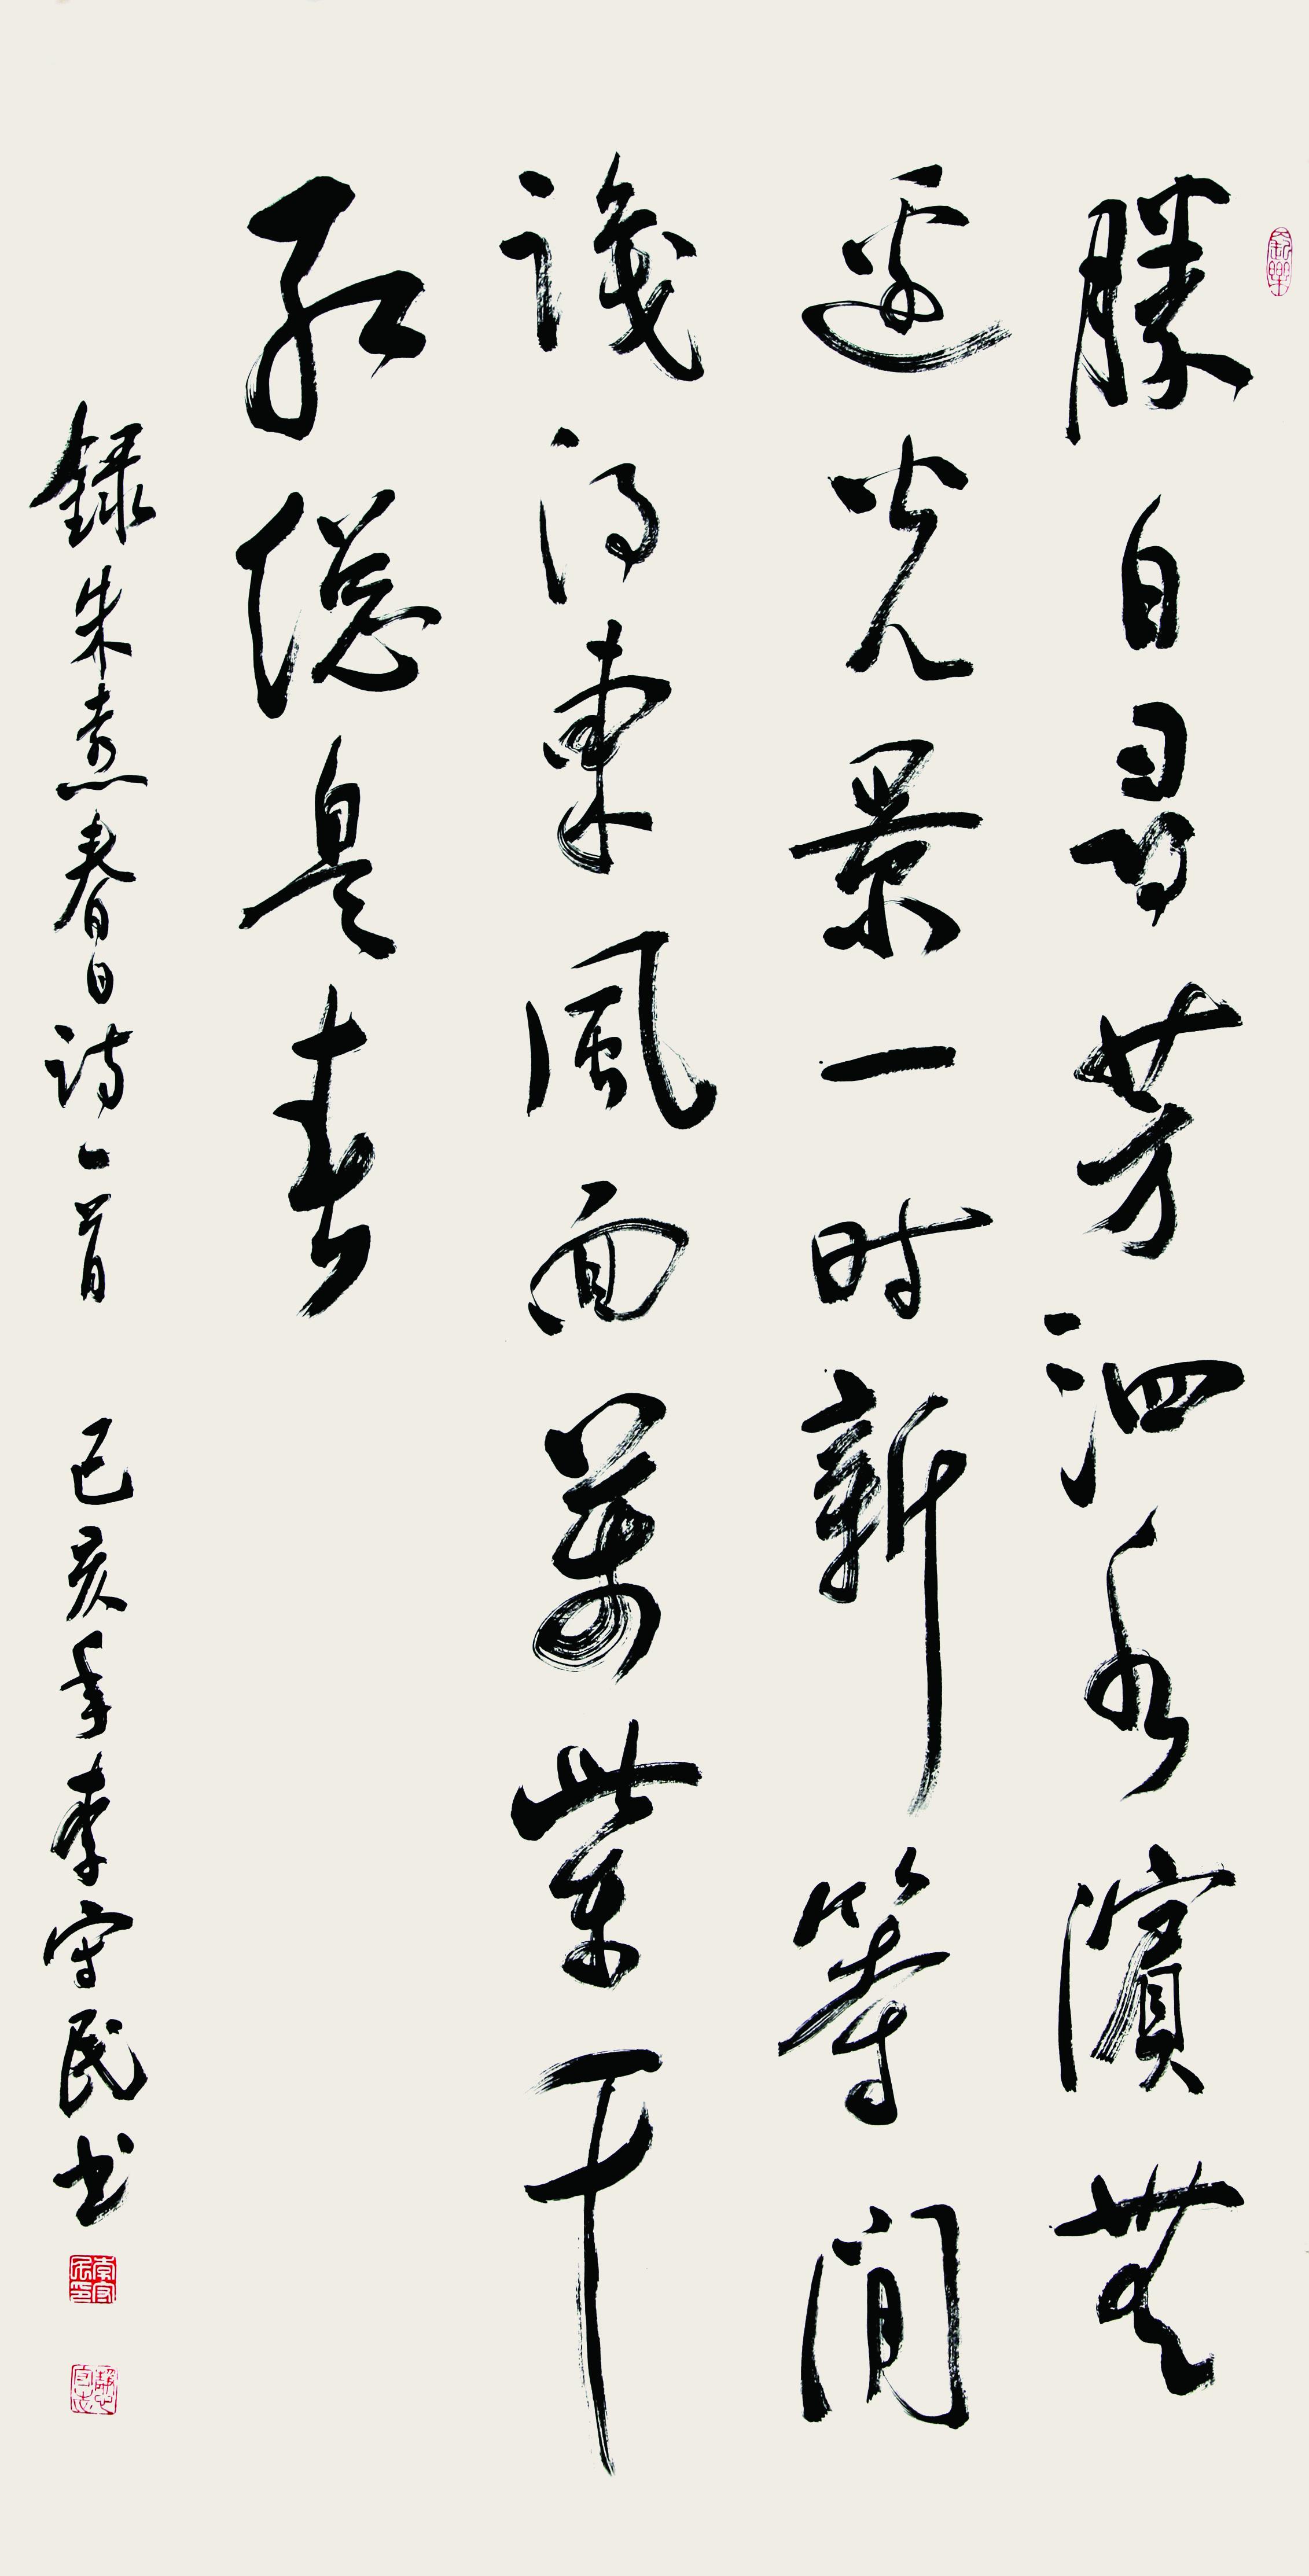 勝日尋芳泗水濱無
邊光景一时新等閒
識得東風面萬紫千
紅總是春
録朱熹春日詩一首 己亥年李守民书
李守民印